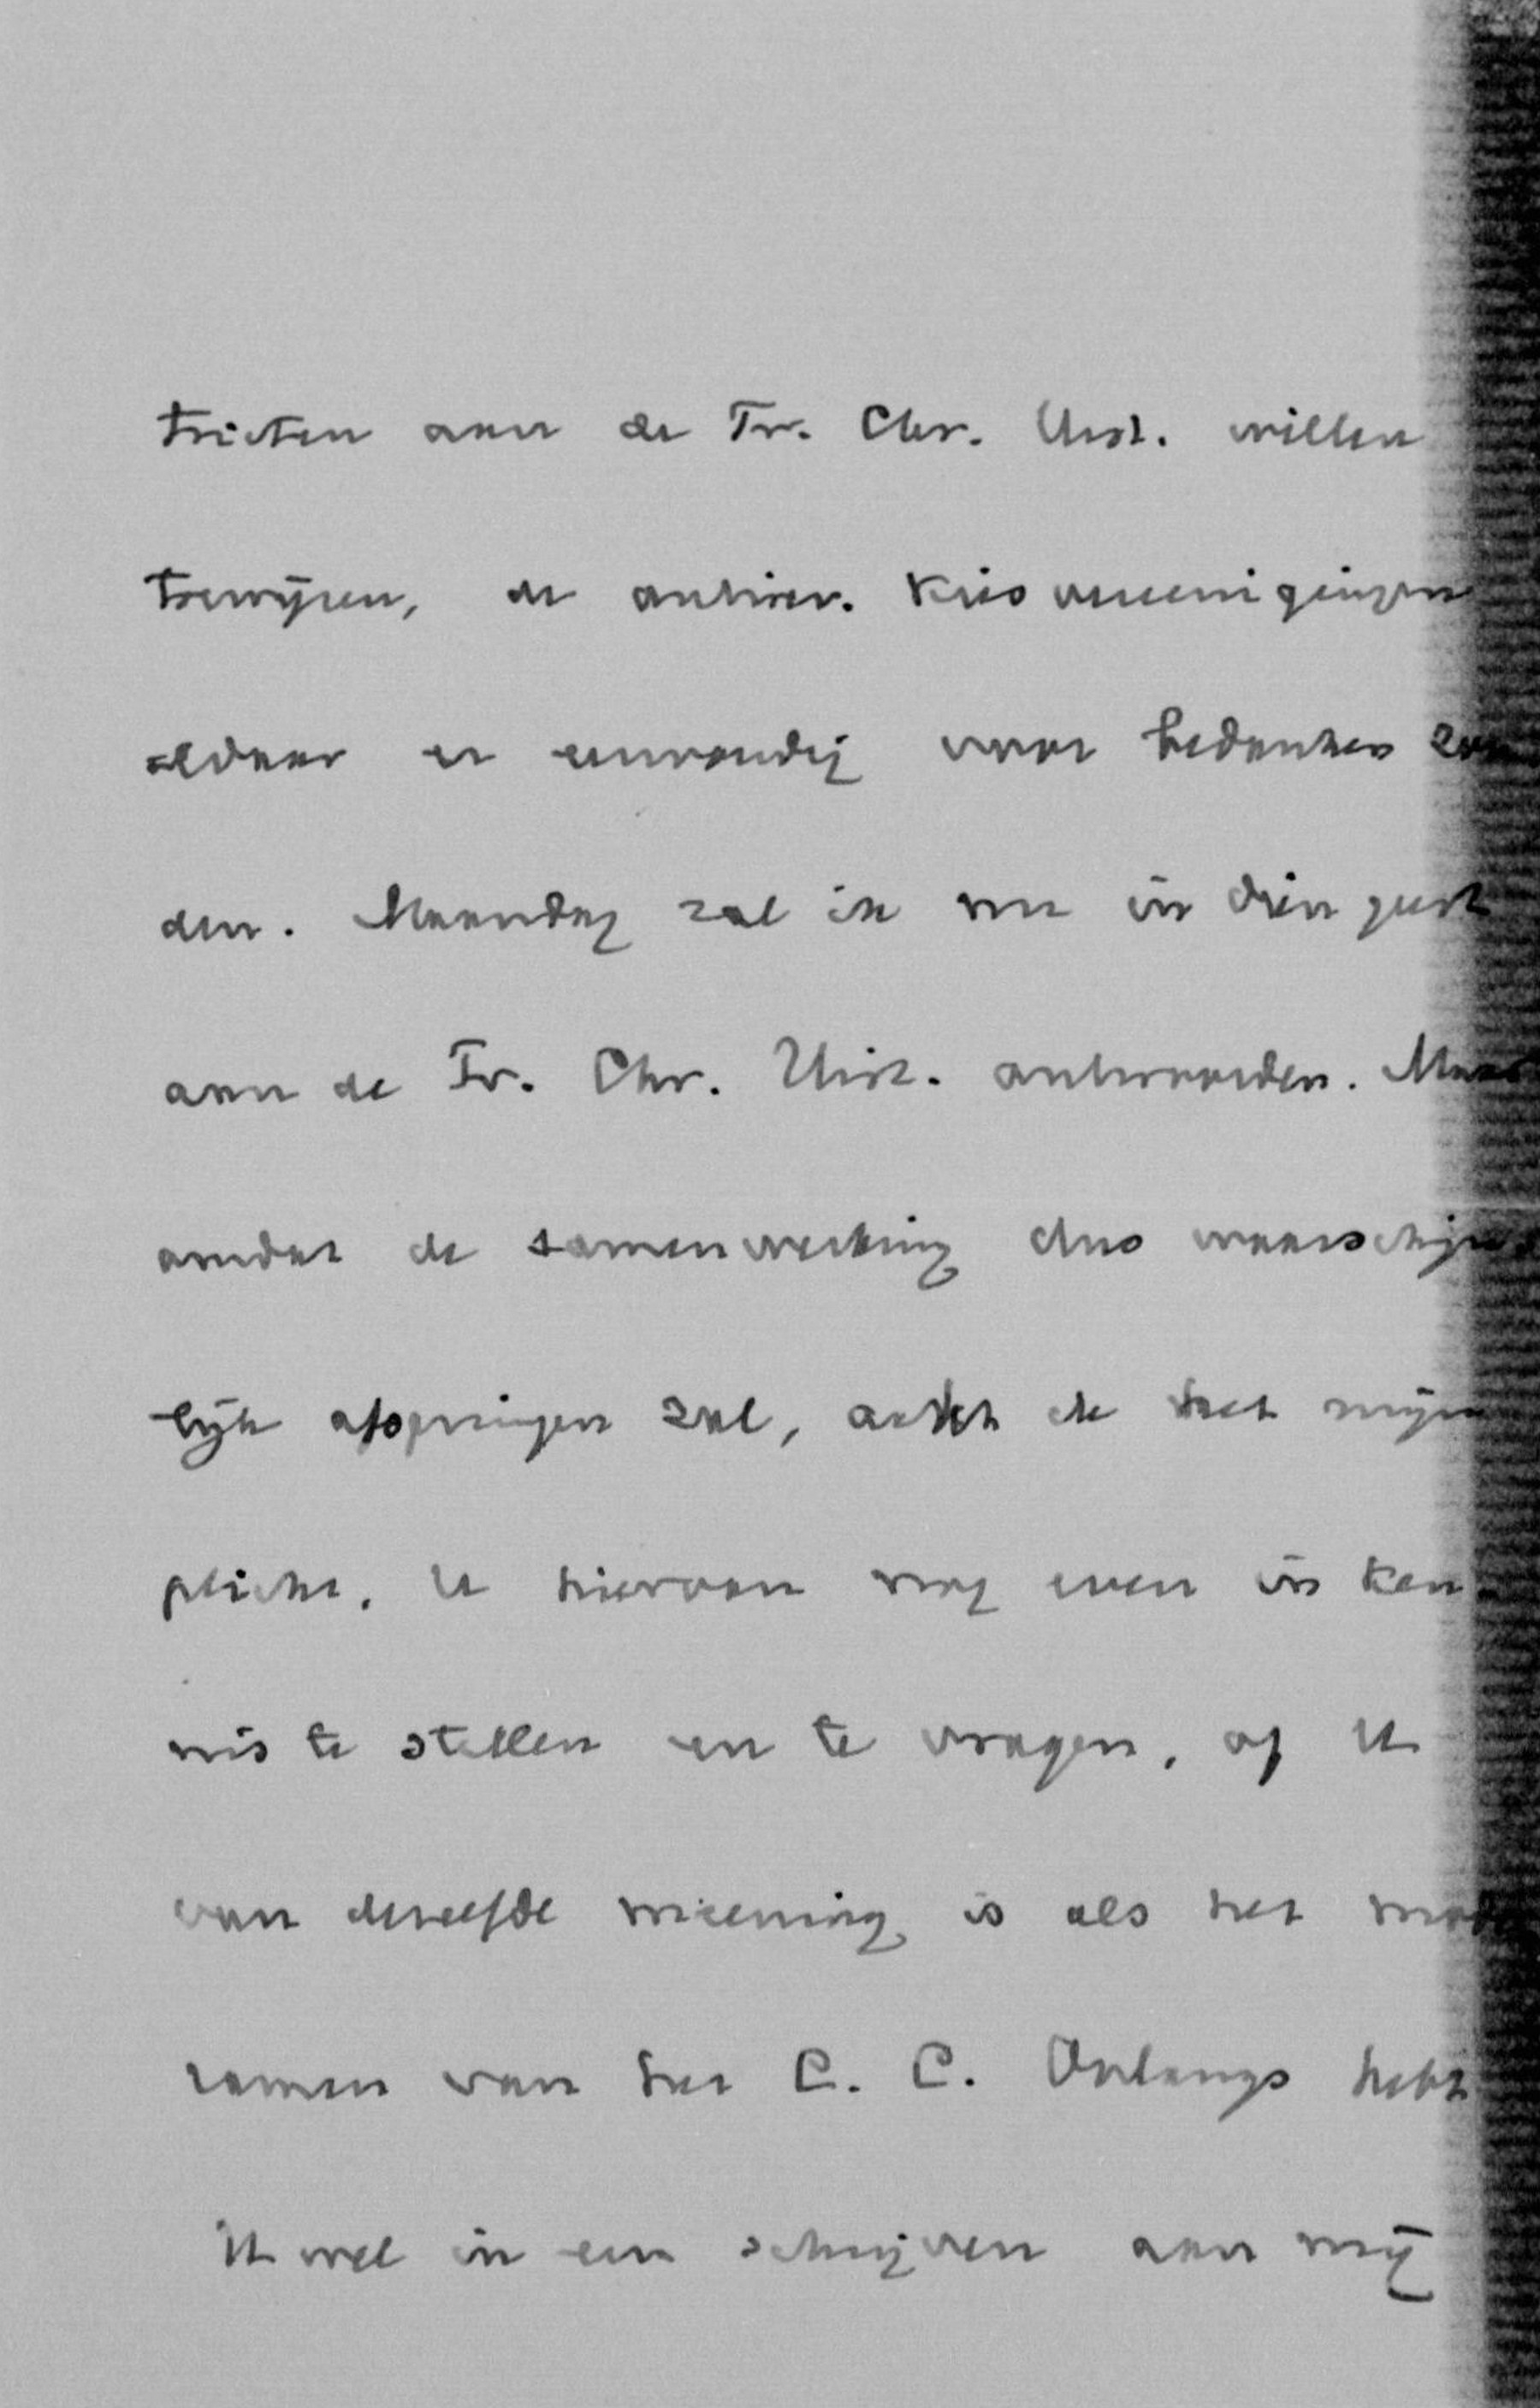 tricten aan de Fr. Chr. Hist. willen
toewijzen, de antirev. Kiesvereenigingen
aldaar er eenvoudig voor bedanken zou
den. Maandag zal ik nu in dien geest
aan de Fr. Chr. Hist. antwoorden. Maar
omdat de samenwerking dus waarschijn
lijk afspringen zal, acht ik het mijn
plicht, U hiervan nog even in ken-
nis te stellen en te vragen, of U
van dezelfde meening is als het mo
ramen van het C. C. Onlangs hebt
U wel in een schrijven aan mij